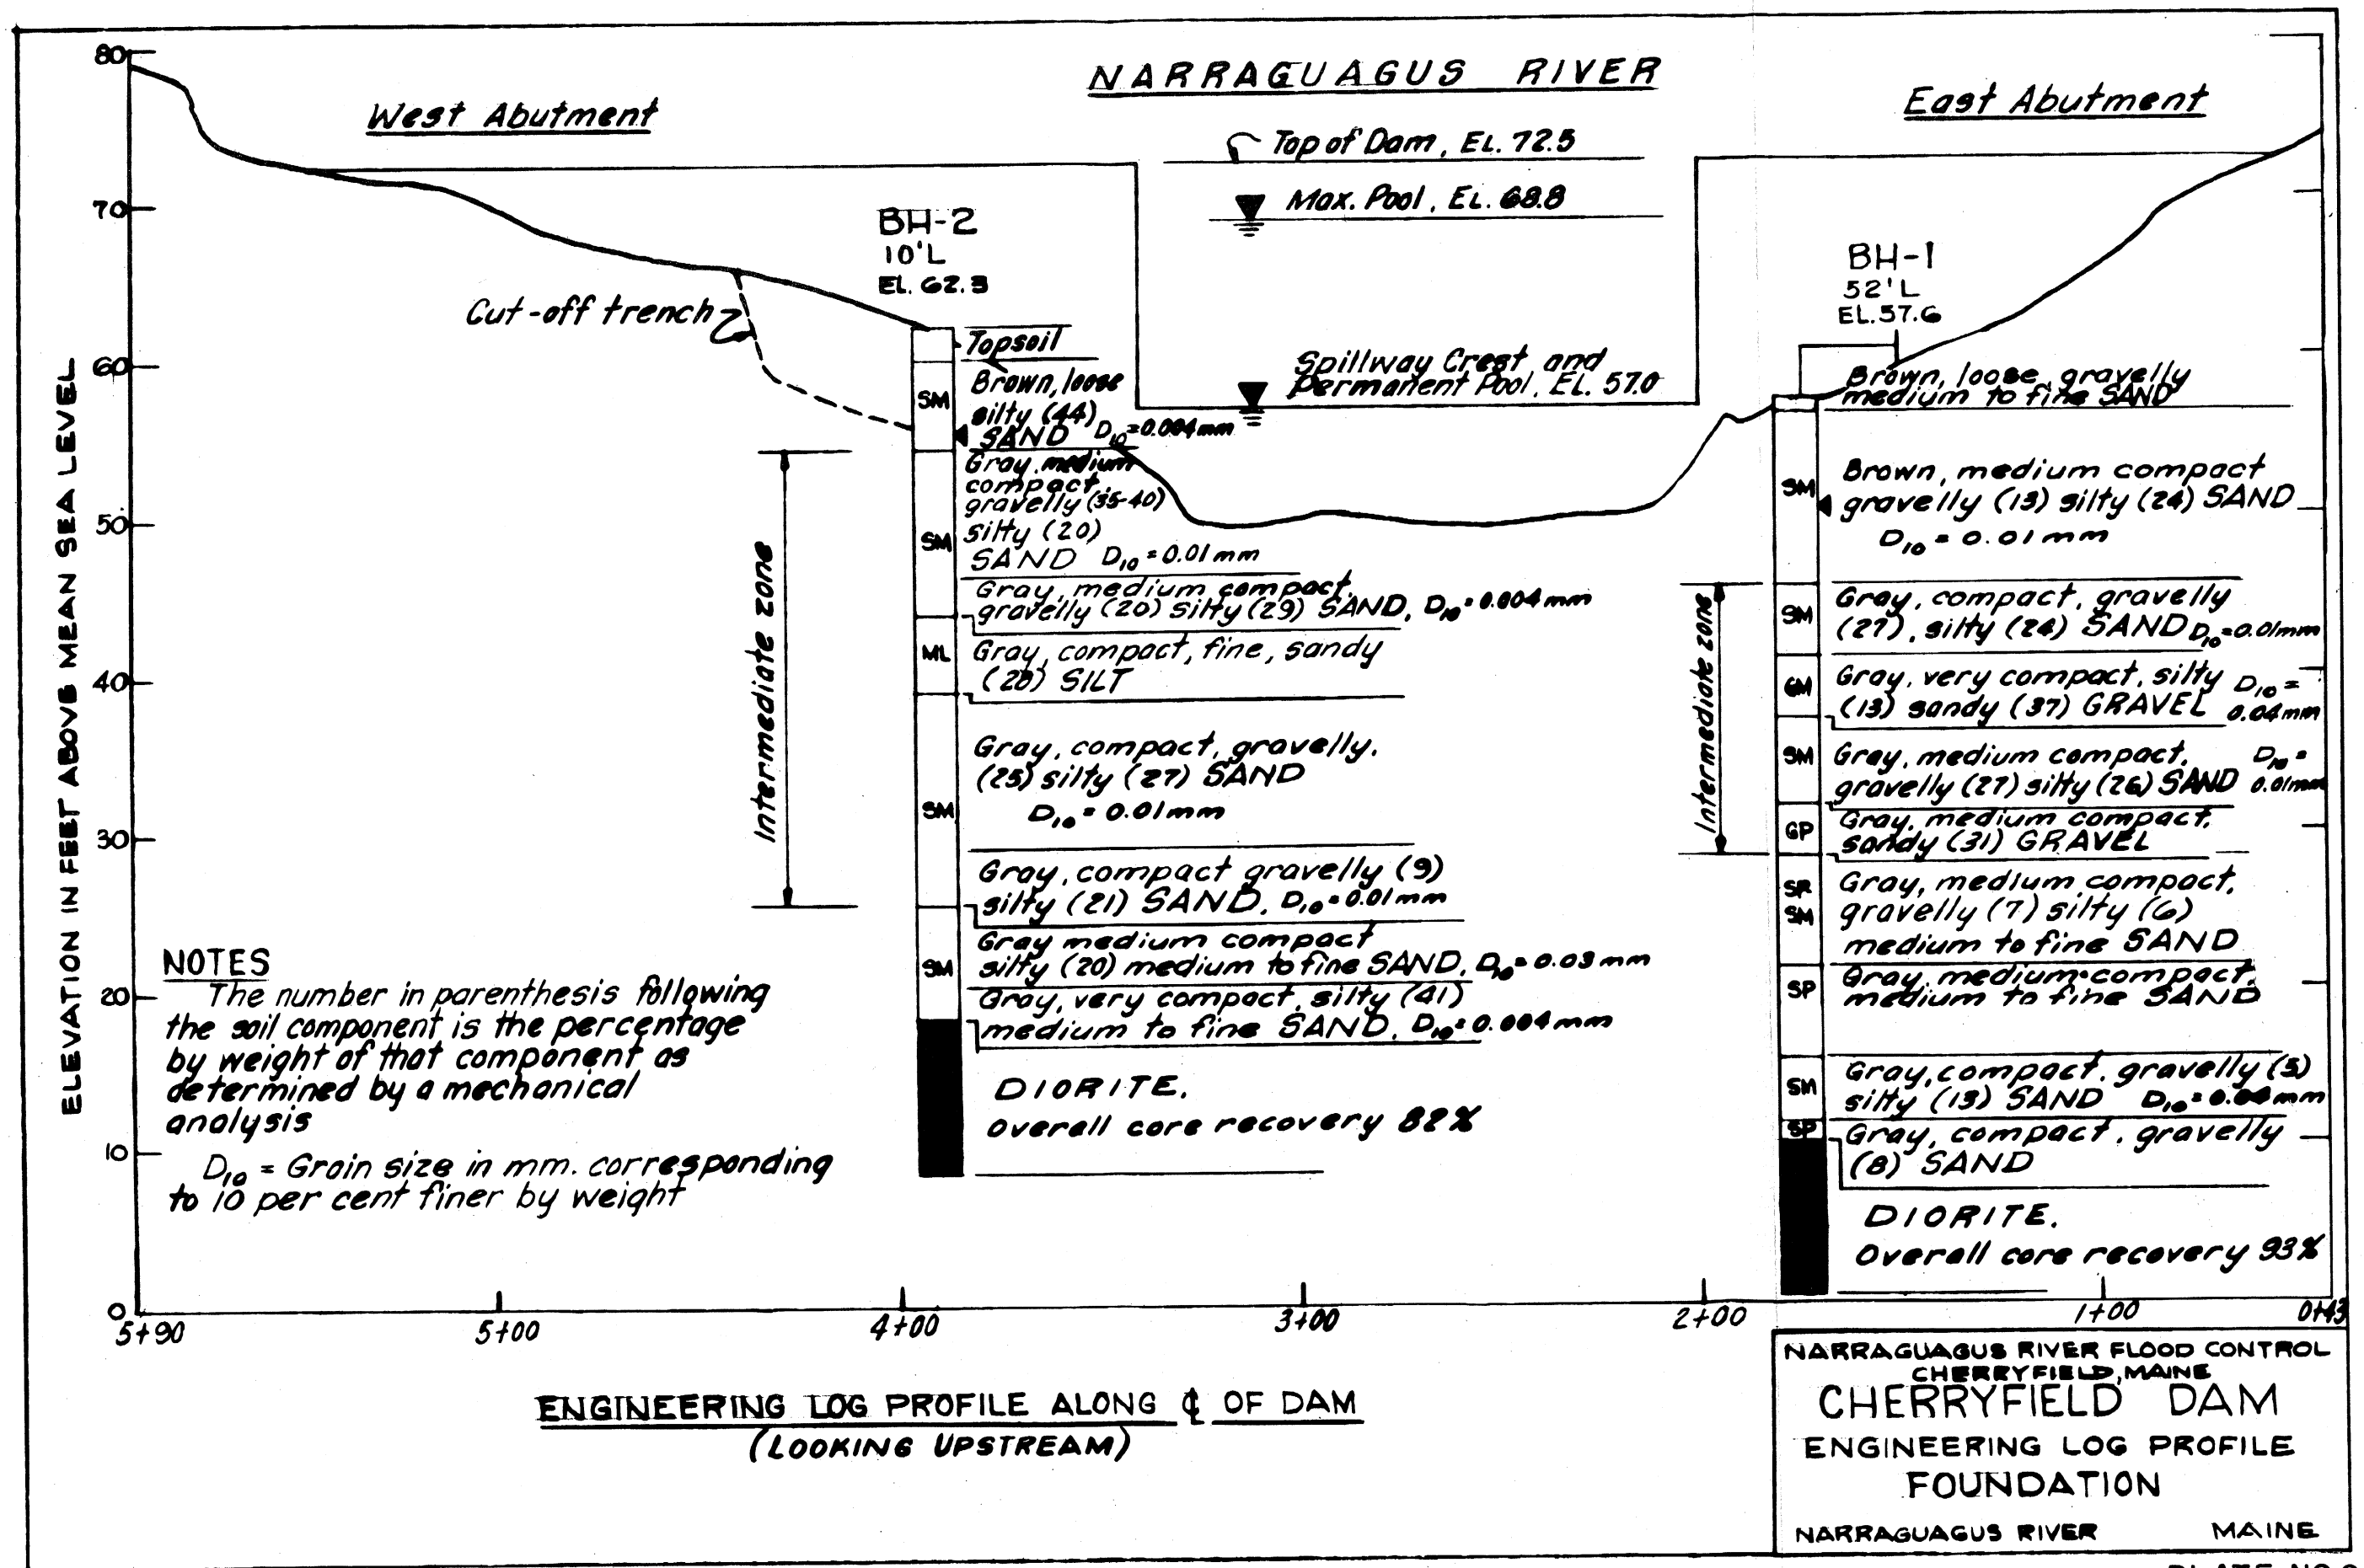 NARRAGUAGUS RIVER
West Abutment
East Abutment
Top of Dam, EL. 72.5
Max. Pool, EL. 68.8
Spillway Crest and
Permanent Pool, EL. 57.0
ELEVATION IN FEET ABOVE MEAN SEA LEVEL
80
70
60
50
40
30
20
10
0
Cut-off trench
BH-2
10'L
EL. 62.3
Topsoil
SM
Brown, loose
silty (44)
SAND D10=0.004mm
SM
Gray, medium
compact,
gravelly (35-40)
silty (20)
SAND D10=0.01mm
Gray, medium compact,
gravelly (20) silty (29) SAND, D10=0.004mm
ML
Gray, compact, fine, sandy
(28) SILT
SM
Gray, compact, gravelly,
(25) silty (27) SAND
D10=0.01mm
Gray, compact gravelly (9)
silty (21) SAND, D10=0.01mm
SM
Gray medium compact
silty (20) medium to fine SAND, D10=0.03mm
Gray, very compact, silty (41)
medium to fine SAND, D10=0.004mm
DIORITE.
Overall core recovery 82%
Intermediate zone
BH-1
52'L
EL.57.6
Brown, loose, gravelly
medium to fine SAND
SM
Brown, medium compact
gravelly (13) silty (24) SAND
D10=0.01mm
SM
Gray, compact, gravelly
(27), silty (24) SAND D10=0.01mm
GM
Gray, very compact, silty D10=
(13) sandy (37) GRAVEL 0.04mm
SM
Gray, medium compact, D10=
gravelly (27) silty (26) SAND 0.01mm
GP
Gray, medium compact,
sandy (31) GRAVEL
SM
Gray, medium compact,
gravelly (7) silty (6)
medium to fine SAND
SP
Gray, medium compact,
medium to fine SAND
SM
Gray, compact, gravelly (5)
silty (13) SAND D10=
SP
Gray, compact, gravelly
(8) SAND
DIORITE.
Overall core recovery 93%
Intermediate zone
NOTES
The number in parenthesis following
the soil component is the percentage
by weight of that component as
determined by a mechanical
analysis
D10 = Grain size in mm. corresponding
to 10 per cent finer by weight
5+90
5+00
4+00
3+00
2+00
1+00
0+43
ENGINEERING LOG PROFILE ALONG ℄ OF DAM
(LOOKING UPSTREAM)
NARRAGUAGUS RIVER FLOOD CONTROL
CHERRYFIELD, MAINE
CHERRYFIELD DAM
ENGINEERING LOG PROFILE
FOUNDATION
NARRAGUAGUS RIVER MAINE